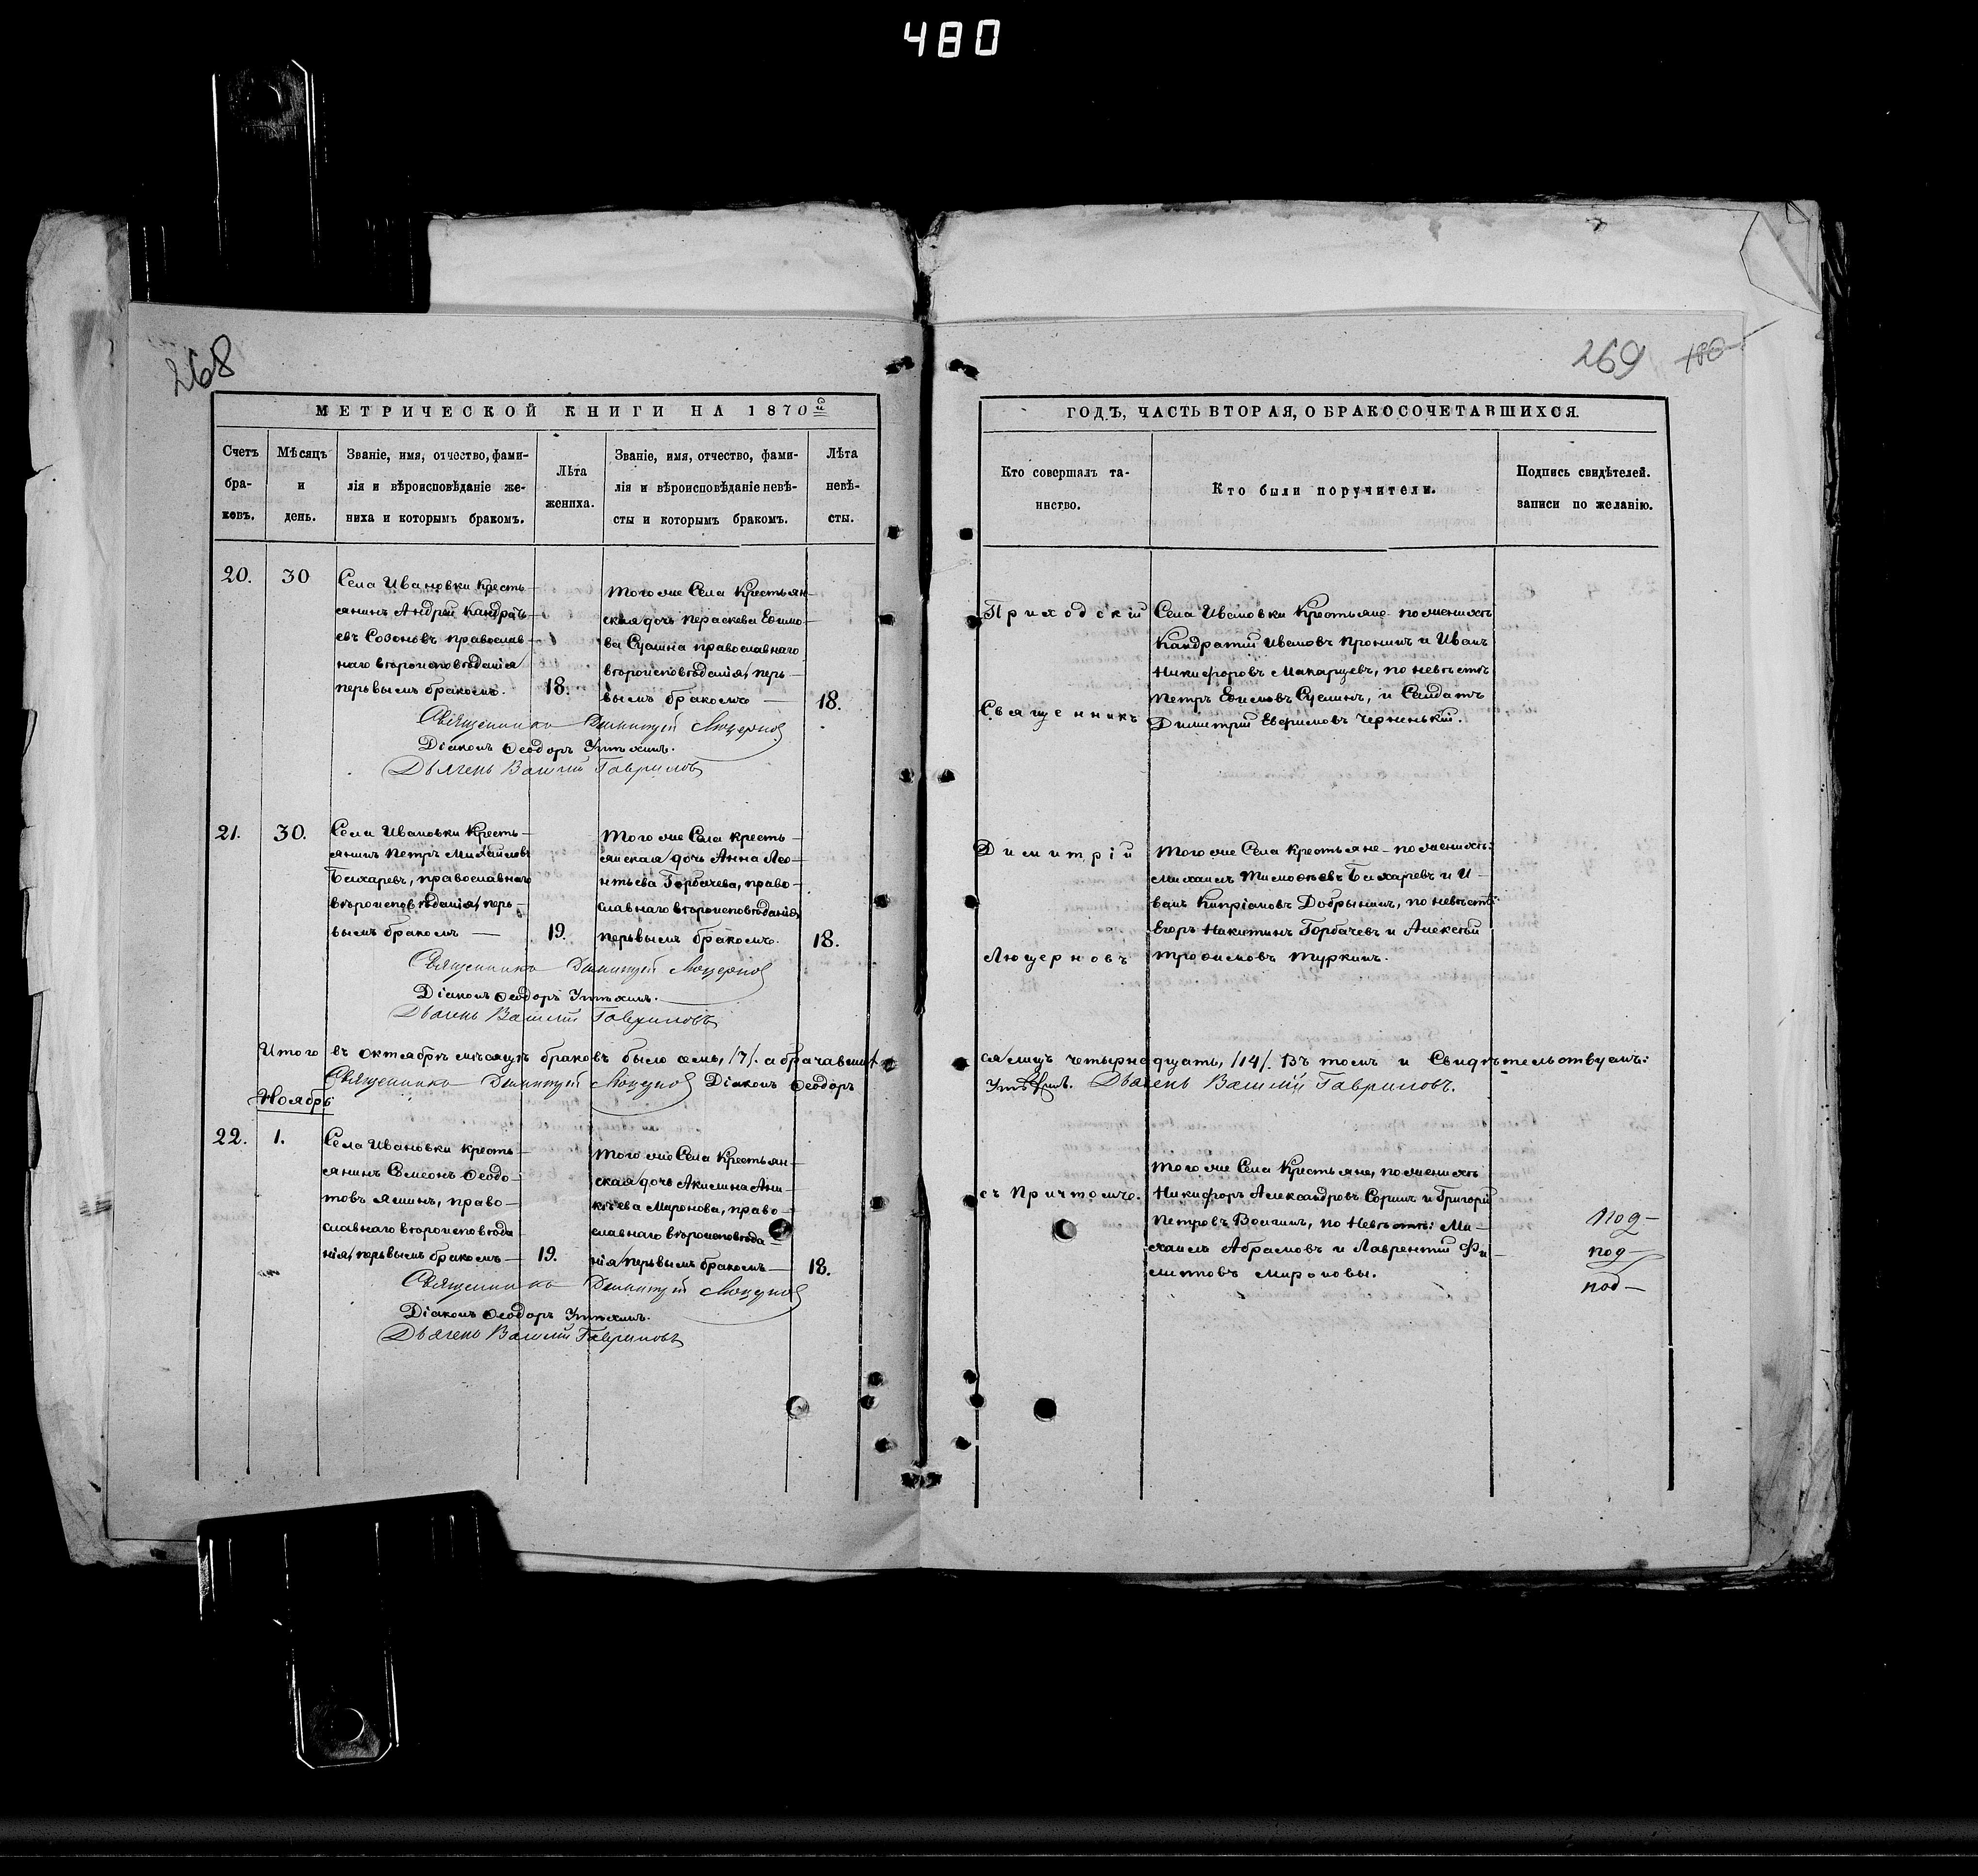 480
268
МЕТРИЧЕСКОЙ КНИГИ НА 1870й
Счетъ бра-ковъ.
Мѣсяцъ и день.
Званіе, имя, отчество, фами-
лія и вѣроисповѣданіе же-
ниха и которымъ бракомъ.
Лѣта
жениха.
Званіе, имя, отчество, фами-
лія и вѣроисповѣданіе невѣ-
сты и которымъ бракомъ.
Лѣта
невѣ-
сты.
20.
30
Села Ивановки кресть-
янинъ Андрей Кандрать-
евъ Созоновъ православ-
наго вѣроисповѣданія
первымъ бракомъ.
18.
Того же Села Крестьян-
ская дочь Параскева Ефимо-
ва Сушина православнаго
вѣроисповѣданія, пер-
вымъ бракомъ
18.
Священникъ Димитрій Люцерновъ
Діаконъ Ѳеодоръ Утѣхинъ.
Дьячекъ Василій Гавриловъ
21.
30.
Села Ивановки Кресть-
янинъ Петръ Михайловъ
Бихаревъ, православнаго
вѣроисповѣданія, пер-
вымъ бракомъ
19.
Того же Села кресть-
янская дочь Анна Лео-
нтьева Горбачева, право-
славнаго вѣроисповѣданія,
первымъ бракомъ.
18.
Священникъ Димитрій Люцерновъ
Діаконъ Ѳеодоръ Утѣхинъ.
Дьячекъ Василій Гавриловъ
Итого въ октябрѣ мѣсяцѣ браковъ было семь, /7/. а брачавших
Священникъ Димитрій Люцерновъ Діаконъ Ѳеодоръ
Ноябрь
22.
1.
Села Ивановки кресть-
янинъ Симеонъ Ѳеодо-
товъ Яшинъ, право-
славнаго вѣроисповѣда
нія, первымъ бракомъ
19.
Того же Села Крестьян-
ская дочь Акилина Ани-
кѣева Миронова, право-
славнаго вѣроисповѣда-
нія первымъ бракомъ
18.
Священникъ Димитрій Люцерновъ
Діаконъ Ѳеодоръ Утѣхинъ.
Дьячекъ Василій Гавриловъ
269 180
ГОДЪ, ЧАСТЬ ВТОРАЯ, О БРАКОСОЧЕТАВШИХСЯ.
Кто совершалъ та-
инство.
Кто были поручители.
Подпись свидѣтелей.
записи по желанію.
Приходскій
Священникъ
Села Ивановки Крестьяне по женихѣ
Кандратій Ивановъ Пронинъ и Иванъ
Никифоровъ Макарцевъ, по невѣстѣ
Петръ Ефимовъ Сушинъ, и Салдатъ
Димитрій Евфимовъ Черненькій.
Димитрій
Люцерновъ
Того же Села Крестьяне по женихѣ:
Михаилъ Тимоѳеевъ Бихаревъ и И-
ванъ Кипріановъ Добрынинъ, по невѣстѣ:
Егоръ Никитинъ Горбачевъ и Алексѣй
Трофимовъ Туркинъ.
ся лицъ четырнадцать, /14/. Въ томъ и Свидѣтельствуемъ:
Утѣхинъ. Дьячекъ Василій Гавриловъ.
съ Причтомъ.
Того же Села Крестьяне, по женихѣ
Никифоръ Александровъ Соринъ и Григорій
Петровъ Волгинъ, по Невѣстѣ: Ми-
хаилъ Абрамовъ и Лаврентій Фи-
липповъ Мироновы.
под-
под-
под-